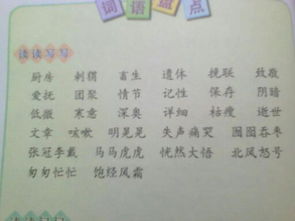 词语盘点
读读写写
厨房 刺猬 畜生 遗体 挽联 致敬
爱抚 团聚 情节 记性 保存 阴暗
低微 寒意 深奥 详细 枯瘦 逝世
文章 咳嗽 明晃晃 失声痛哭 囫囵吞枣
张冠李戴 马马虎虎 恍然大悟 北风怒号
匆匆忙忙 饱经风霜